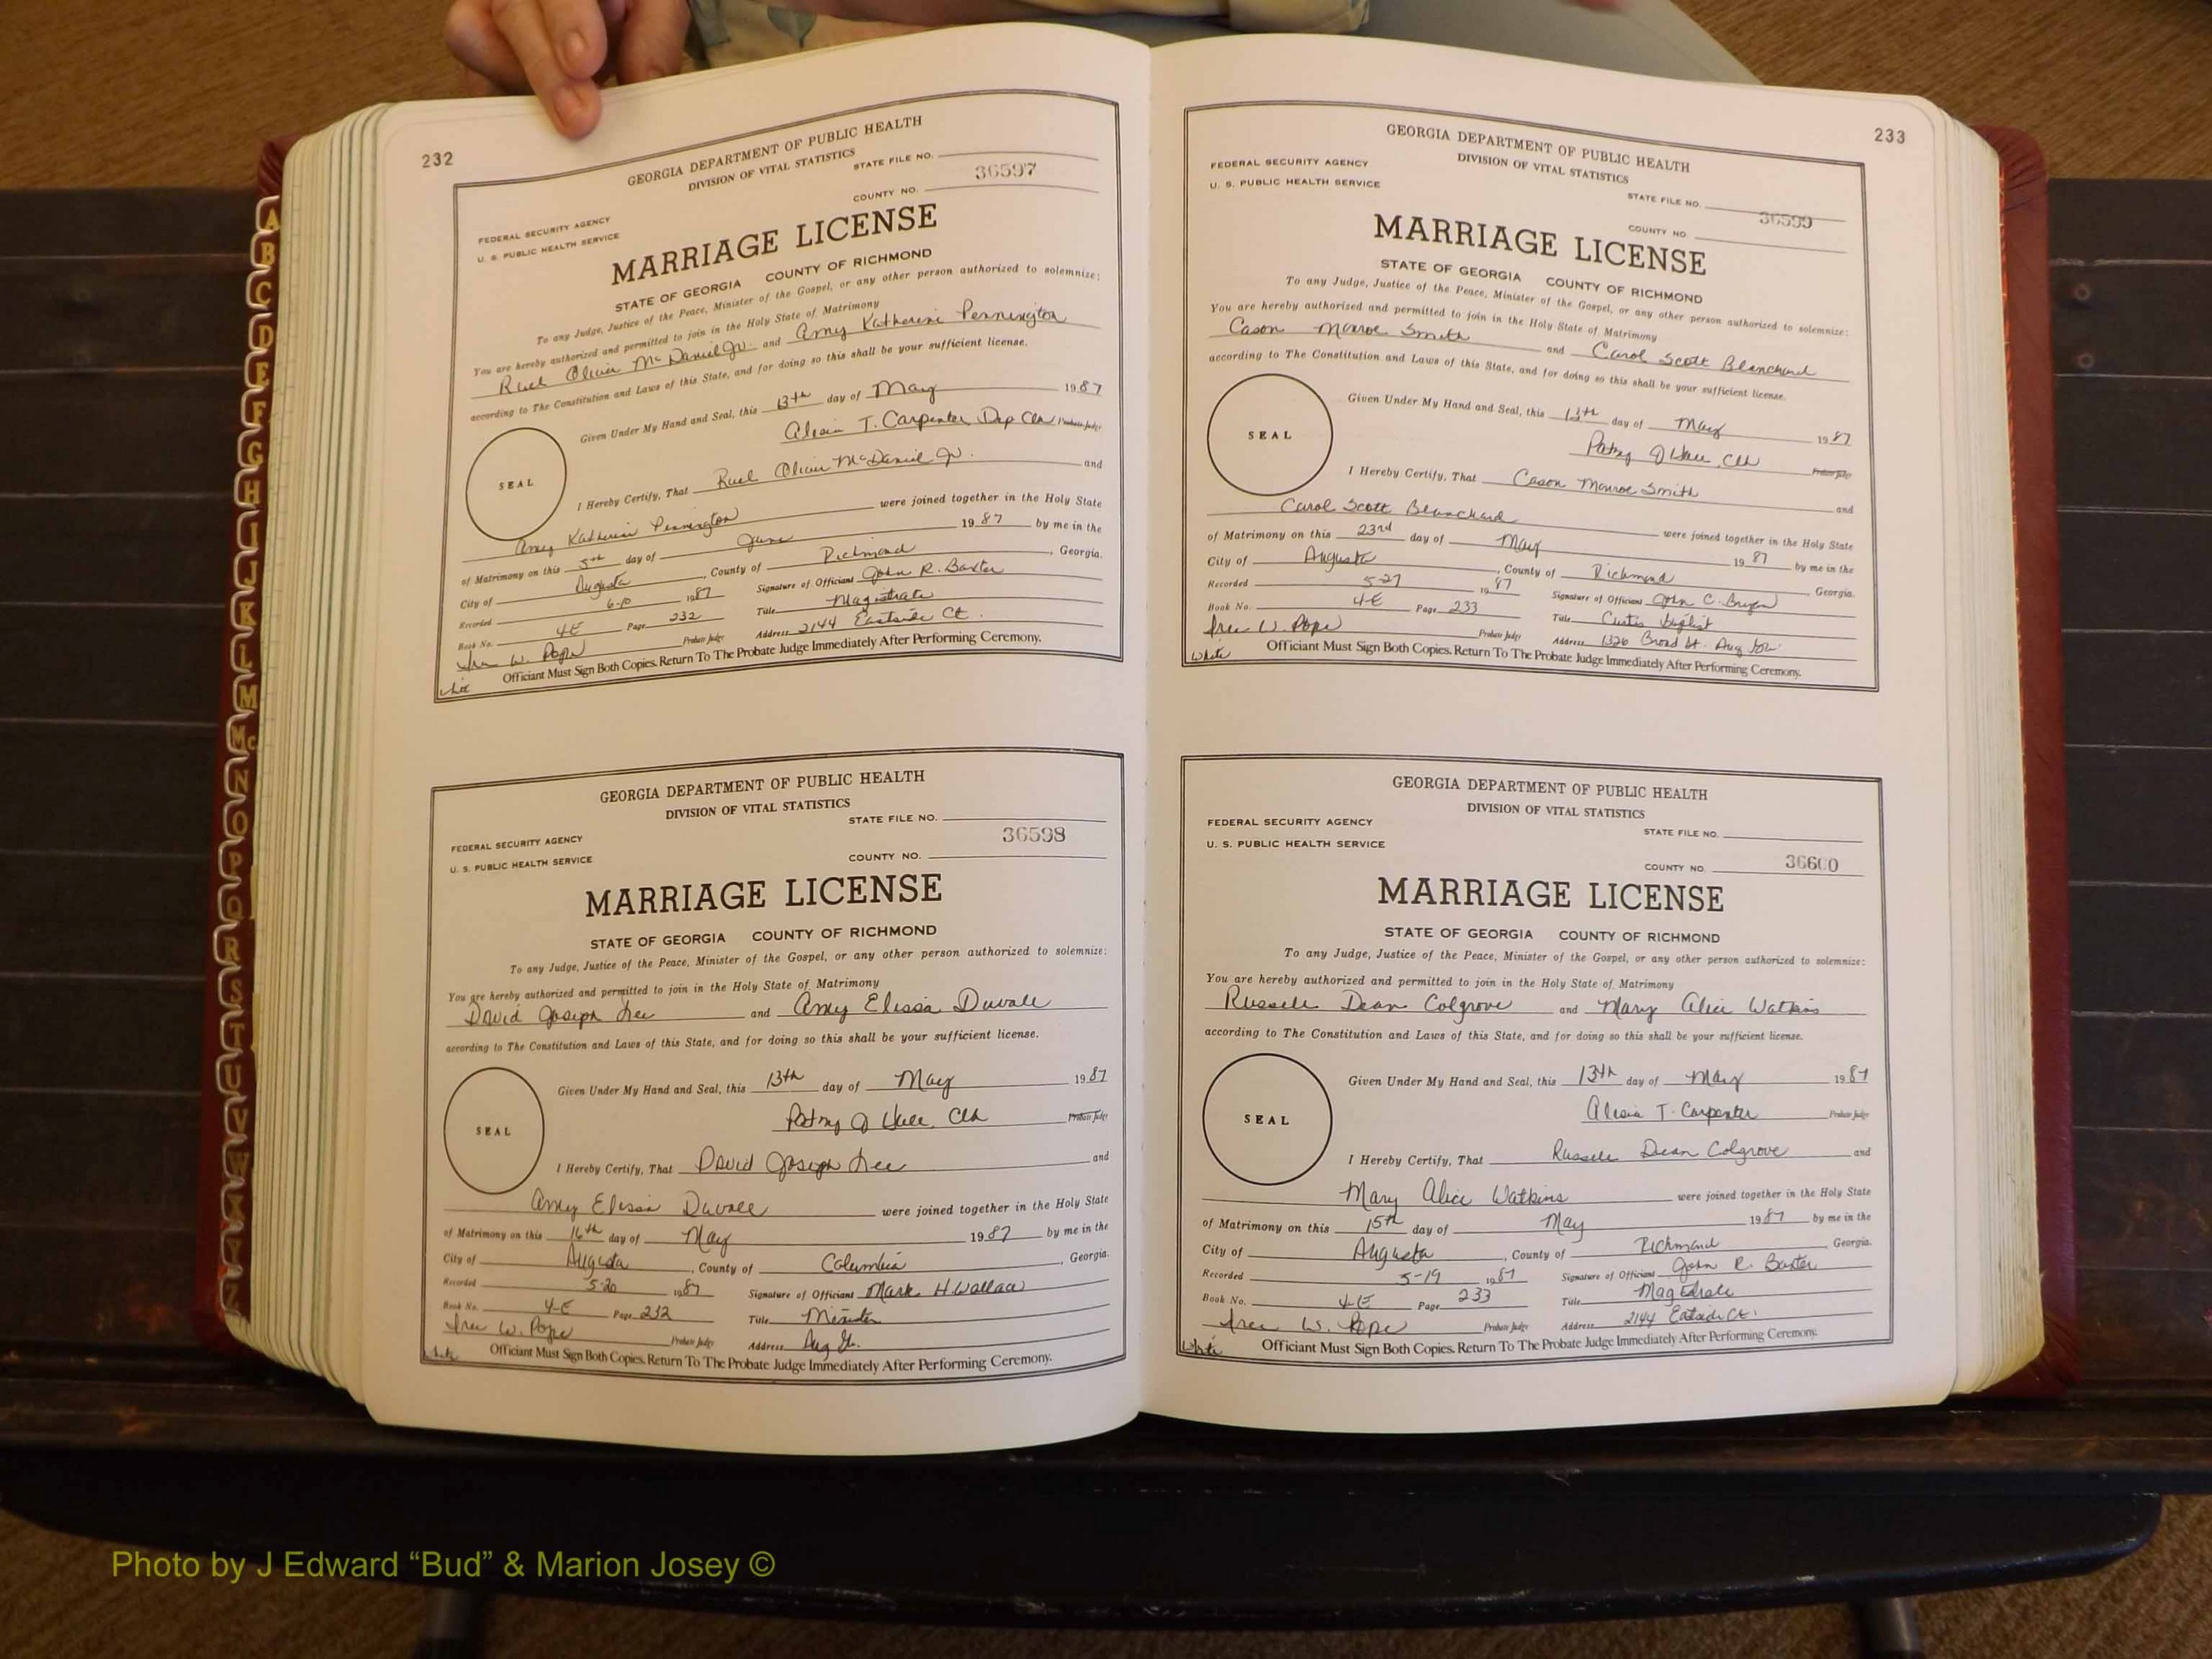 232
GEORGIA DEPARTMENT OF PUBLIC HEALTH
DIVISION OF VITAL STATISTICS
STATE FILE NO.
36597
COUNTY NO.
FEDERAL SECURITY AGENCY
U. S. PUBLIC HEALTH SERVICE
MARRIAGE LICENSE
STATE OF GEORGIA COUNTY OF RICHMOND
To any Judge, Justice of the Peace, Minister of the Gospel, or any other person authorized to solemnize:
You are hereby authorized and permitted to join in the Holy State of Matrimony
Ruel Oliver McDaniel Jr. and Amy Katherine Pennington
according to The Constitution and Laws of this State, and for doing so this shall be your sufficient license.
Given Under My Hand and Seal, this 13th day of May 1987
Alicia T. Carpenter, Dep Clk Probate Judge
SEAL
I Hereby Certify, That Ruel Oliver McDaniel Jr. and
Amy Katherine Pennington were joined together in the Holy State
of Matrimony on this 5th day of June 1987 by me in the
City of Augusta, County of Richmond, Georgia.
Recorded 6-10 1987 Signature of Officiant John R. Baxter
Book No. 4E Page 232 Title Magistrate
W. Pope Probate Judge Address 2144 Eastside Ct.
Officiant Must Sign Both Copies. Return To The Probate Judge Immediately After Performing Ceremony.
GEORGIA DEPARTMENT OF PUBLIC HEALTH
DIVISION OF VITAL STATISTICS
STATE FILE NO.
36598
COUNTY NO.
FEDERAL SECURITY AGENCY
U. S. PUBLIC HEALTH SERVICE
MARRIAGE LICENSE
STATE OF GEORGIA COUNTY OF RICHMOND
To any Judge, Justice of the Peace, Minister of the Gospel, or any other person authorized to solemnize:
You are hereby authorized and permitted to join in the Holy State of Matrimony
David Joseph Lee and Amy Elissa Duvall
according to The Constitution and Laws of this State, and for doing so this shall be your sufficient license.
Given Under My Hand and Seal, this 13th day of May 1987
Patsy J Hill, Clk Probate Judge
SEAL
I Hereby Certify, That David Joseph Lee and
Amy Elissa Duvall were joined together in the Holy State
of Matrimony on this 16th day of May 1987 by me in the
City of Augusta, County of Columbia, Georgia.
Recorded 5-20 1987 Signature of Officiant Mark H. Wallace
Book No. 4-E Page 232 Title Minister
W. Pope Probate Judge Address Aug Ga.
Officiant Must Sign Both Copies. Return To The Probate Judge Immediately After Performing Ceremony.
233
GEORGIA DEPARTMENT OF PUBLIC HEALTH
DIVISION OF VITAL STATISTICS
FEDERAL SECURITY AGENCY
U. S. PUBLIC HEALTH SERVICE
STATE FILE NO.
36599
COUNTY NO.
MARRIAGE LICENSE
STATE OF GEORGIA COUNTY OF RICHMOND
To any Judge, Justice of the Peace, Minister of the Gospel, or any other person authorized to solemnize:
You are hereby authorized and permitted to join in the Holy State of Matrimony
Cason Monroe Smith and Carol Scott Blanchard
according to The Constitution and Laws of this State, and for doing so this shall be your sufficient license.
Given Under My Hand and Seal, this 13th day of May 1987
Patsy J Hill, Clk Probate Judge
SEAL
I Hereby Certify, That Cason Monroe Smith and
Carol Scott Blanchard were joined together in the Holy State
of Matrimony on this 23rd day of May 1987 by me in the
City of Augusta, County of Richmond, Georgia.
Recorded 5-27 1987 Signature of Officiant John C. Bryan
Book No. 4-E Page 233 Title Curtis Baptist
W. Pope Probate Judge Address 1326 Broad St. Aug
White
Officiant Must Sign Both Copies. Return To The Probate Judge Immediately After Performing Ceremony.
GEORGIA DEPARTMENT OF PUBLIC HEALTH
DIVISION OF VITAL STATISTICS
FEDERAL SECURITY AGENCY
U. S. PUBLIC HEALTH SERVICE
STATE FILE NO.
COUNTY NO. 36600
MARRIAGE LICENSE
STATE OF GEORGIA COUNTY OF RICHMOND
To any Judge, Justice of the Peace, Minister of the Gospel, or any other person authorized to solemnize:
You are hereby authorized and permitted to join in the Holy State of Matrimony
Russell Dean Colgrove and Mary Alice Watkins
according to The Constitution and Laws of this State, and for doing so this shall be your sufficient license.
Given Under My Hand and Seal, this 13th day of May 1987
Alicia T. Carpenter Probate Judge
SEAL
I Hereby Certify, That Russell Dean Colgrove and
Mary Alice Watkins were joined together in the Holy State
of Matrimony on this 15th day of May 1987 by me in the
City of Augusta, County of Richmond Georgia.
Recorded 5-19 1987 Signature of Officiant John R. Baxter
Book No. 4-E Page 233 Title Magistrate
W. Pope Probate Judge Address 2144 Eastside Ct.
White
Officiant Must Sign Both Copies. Return To The Probate Judge Immediately After Performing Ceremony.
A
B
C
D
E
F
G
H
I
J
K
L
M
Mc
N
O
P
Q
R
S
T
U
V
W
X
Y
Z
Photo by J Edward “Bud” & Marion Josey ©